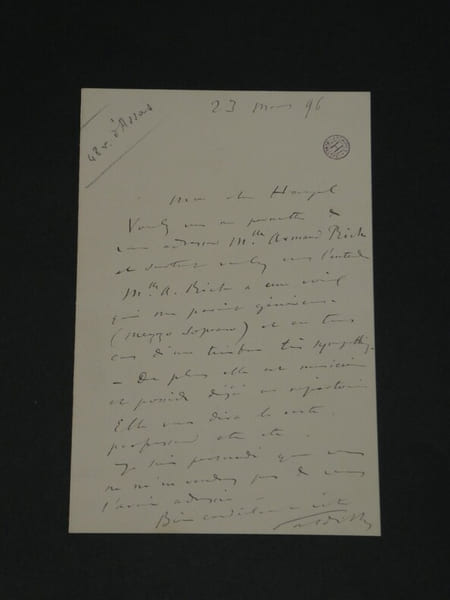 48 r. d'Assas
23 mars 96
Mon cher Hangel
Voulez vous me permettre de
vous adresser Mlle Armand
et surtout voulez vous l'entendre
Mlle A. a une voix
qui me parait généreuse
(mezzo soprano) et en tous
cas d'un timbre très
— De plus elle est musicienne
et possède déjà un répertoire
Elle vous dira le reste.
professeur etc etc.
Je suis persuadé que vous
ne m'en voudrez pas de vous
l'avoir adressée
Bien cordialement